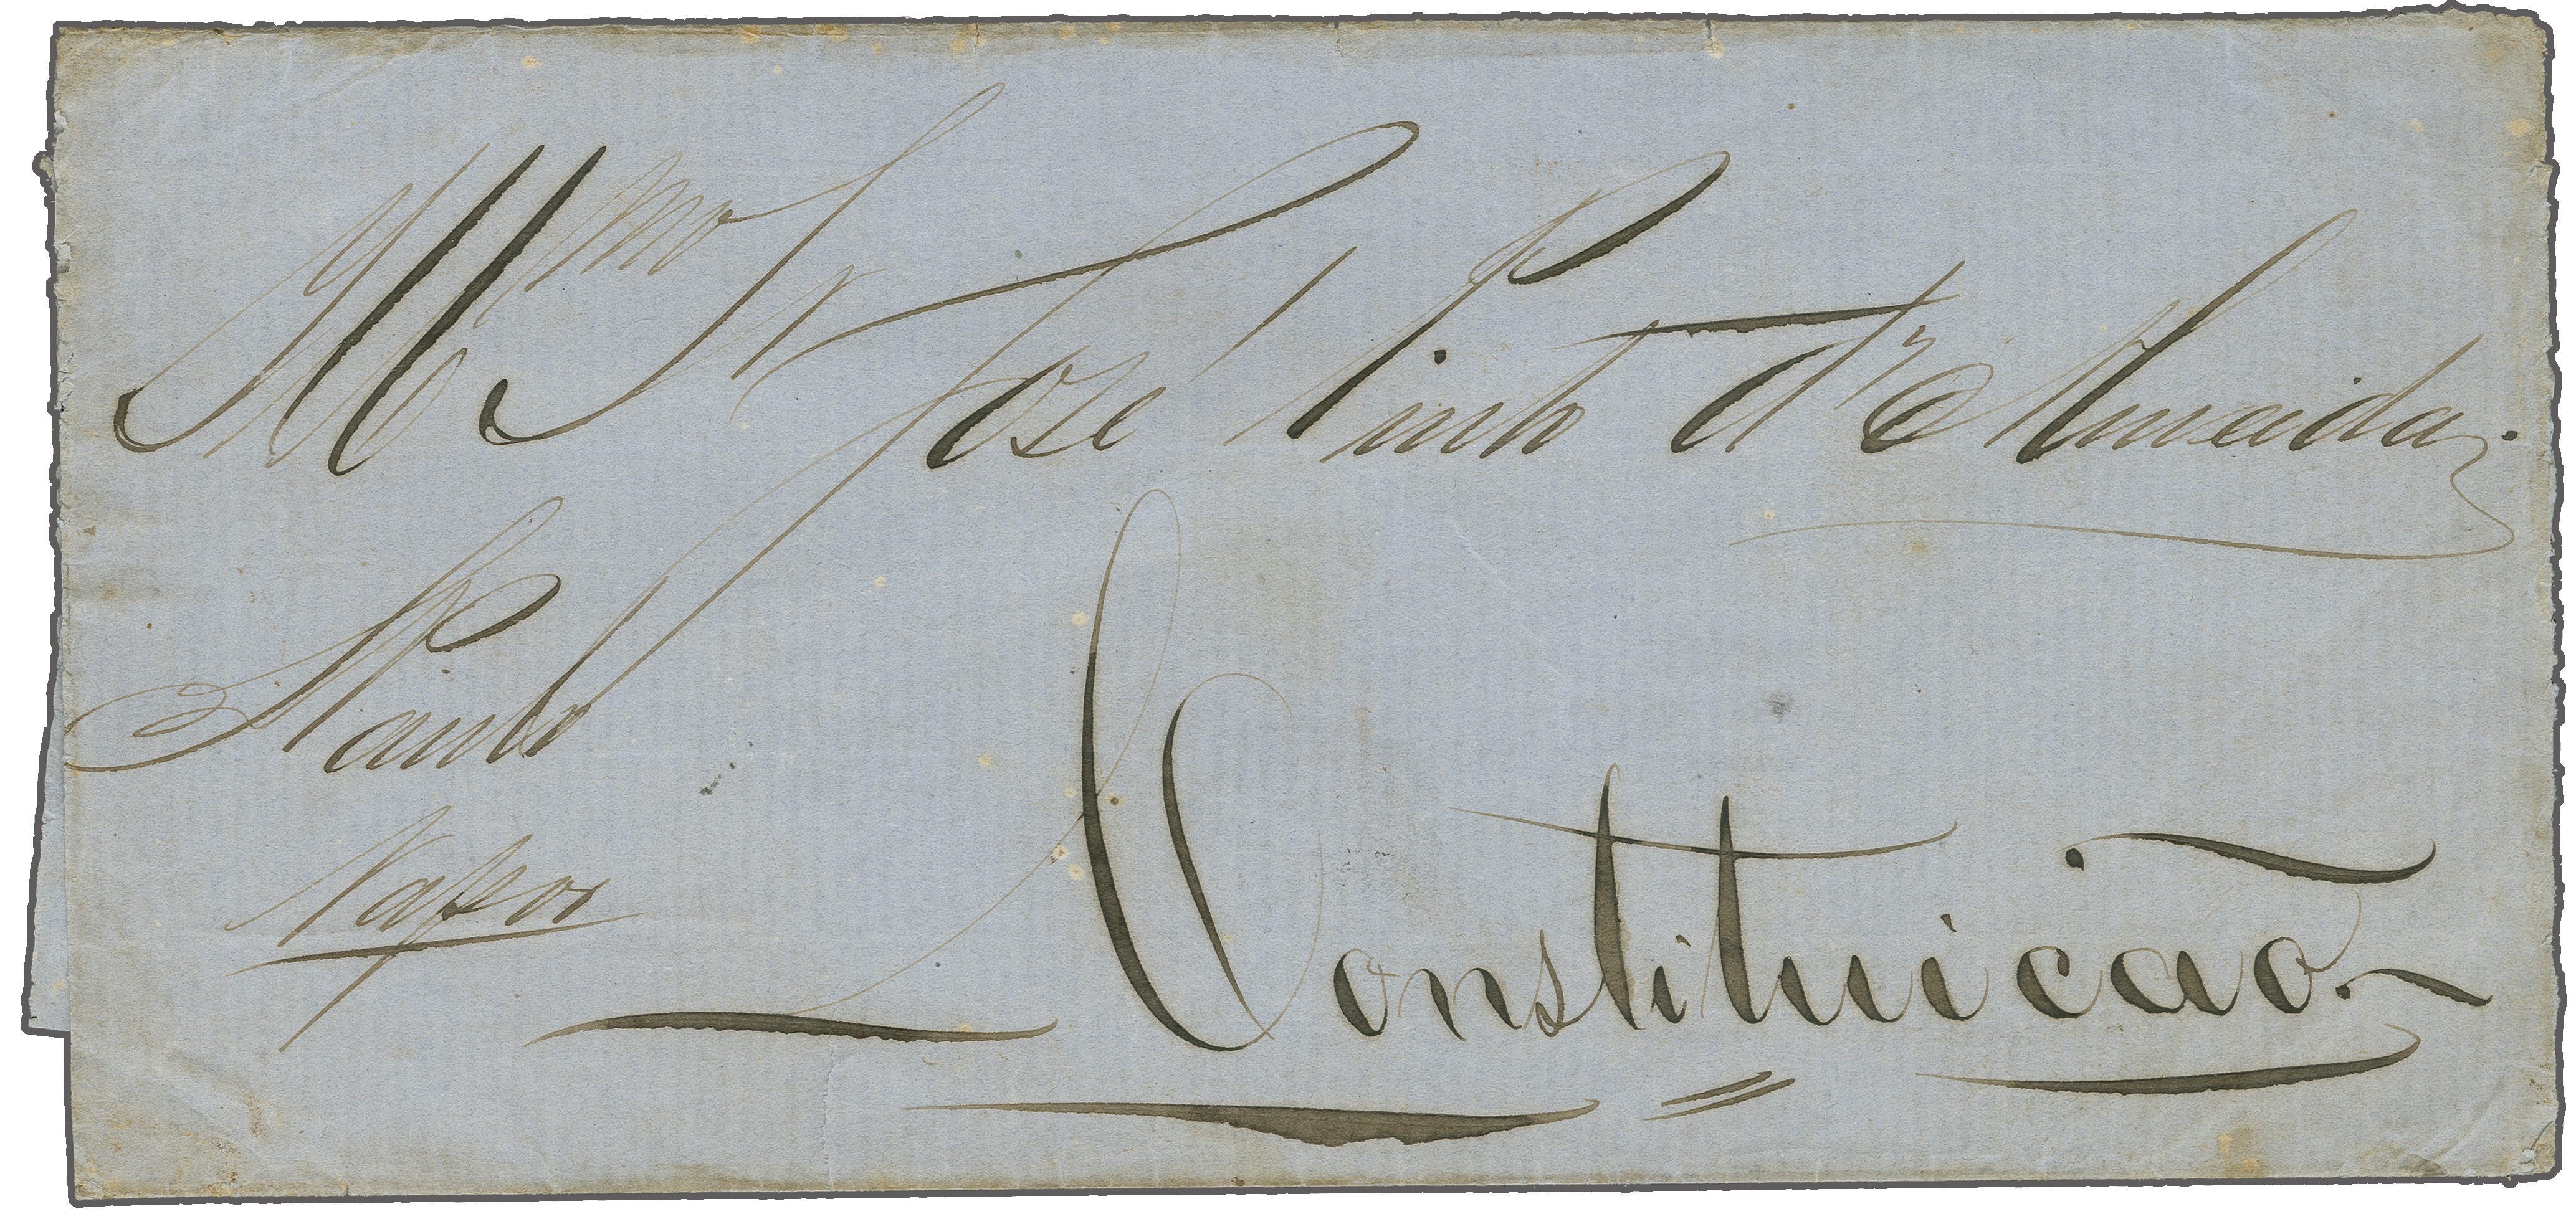 Illmo Sr José Pinto d'Almeida
S Paulo
Vapor
Constituicão.